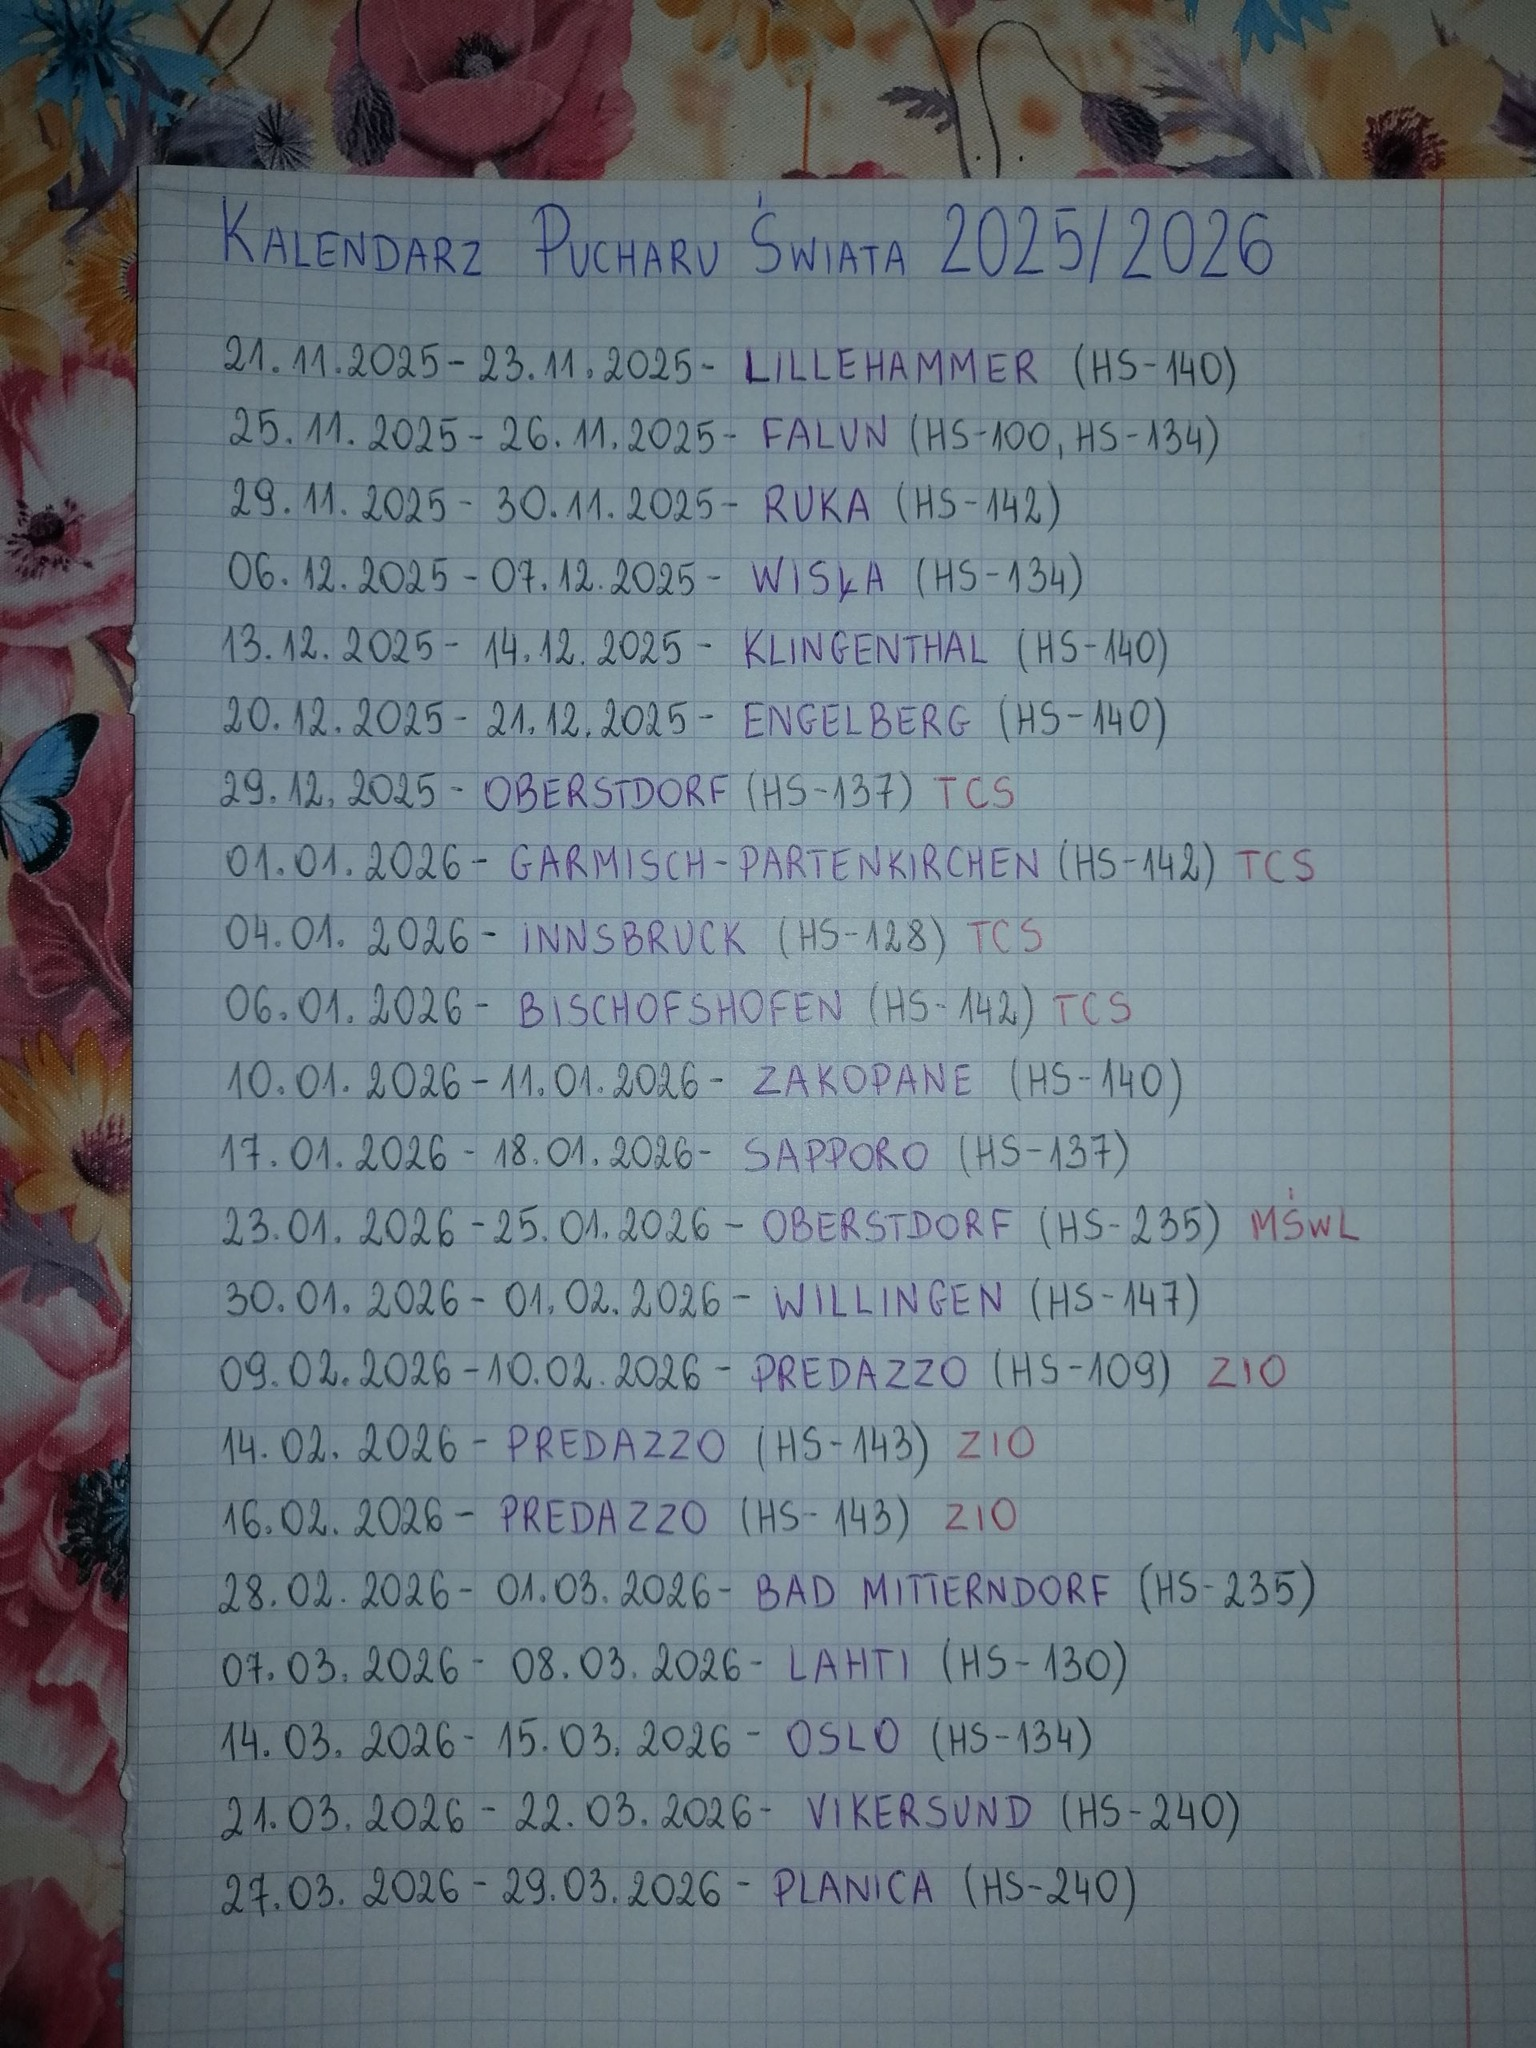 KALENDARZ PUCHARU ŚWIATA 2025/2026
21.11.2025 - 23.11.2025 - LILLEHAMMER (HS-140)
25.11.2025 - 26.11.2025 - FALUN (HS-100, HS-134)
29.11.2025 - 30.11.2025 - RUKA (HS-142)
06.12.2025 - 07.12.2025 - WISŁA (HS-134)
13.12.2025 - 14.12.2025 - KLINGENTHAL (HS-140)
20.12.2025 - 21.12.2025 - ENGELBERG (HS-140)
29.12.2025 - OBERSTDORF (HS-137) TCS
01.01.2026 - GARMISCH-PARTENKIRCHEN (HS-142) TCS
04.01.2026 - INNSBRUCK (HS-128) TCS
06.01.2026 - BISCHOFSHOFEN (HS-142) TCS
10.01.2026 - 11.01.2026 - ZAKOPANE (HS-140)
17.01.2026 - 18.01.2026 - SAPPORO (HS-137)
23.01.2026 - 25.01.2026 - OBERSTDORF (HS-235) MŚWL
30.01.2026 - 01.02.2026 - WILLINGEN (HS-147)
09.02.2026 - 10.02.2026 - PREDAZZO (HS-109) ZIO
14.02.2026 - PREDAZZO (HS-143) ZIO
16.02.2026 - PREDAZZO (HS-143) ZIO
28.02.2026 - 01.03.2026 - BAD MITTERNDORF (HS-235)
07.03.2026 - 08.03.2026 - LAHTI (HS-130)
14.03.2026 - 15.03.2026 - OSLO (HS-134)
21.03.2026 - 22.03.2026 - VIKERSUND (HS-240)
27.03.2026 - 29.03.2026 - PLANICA (HS-240)